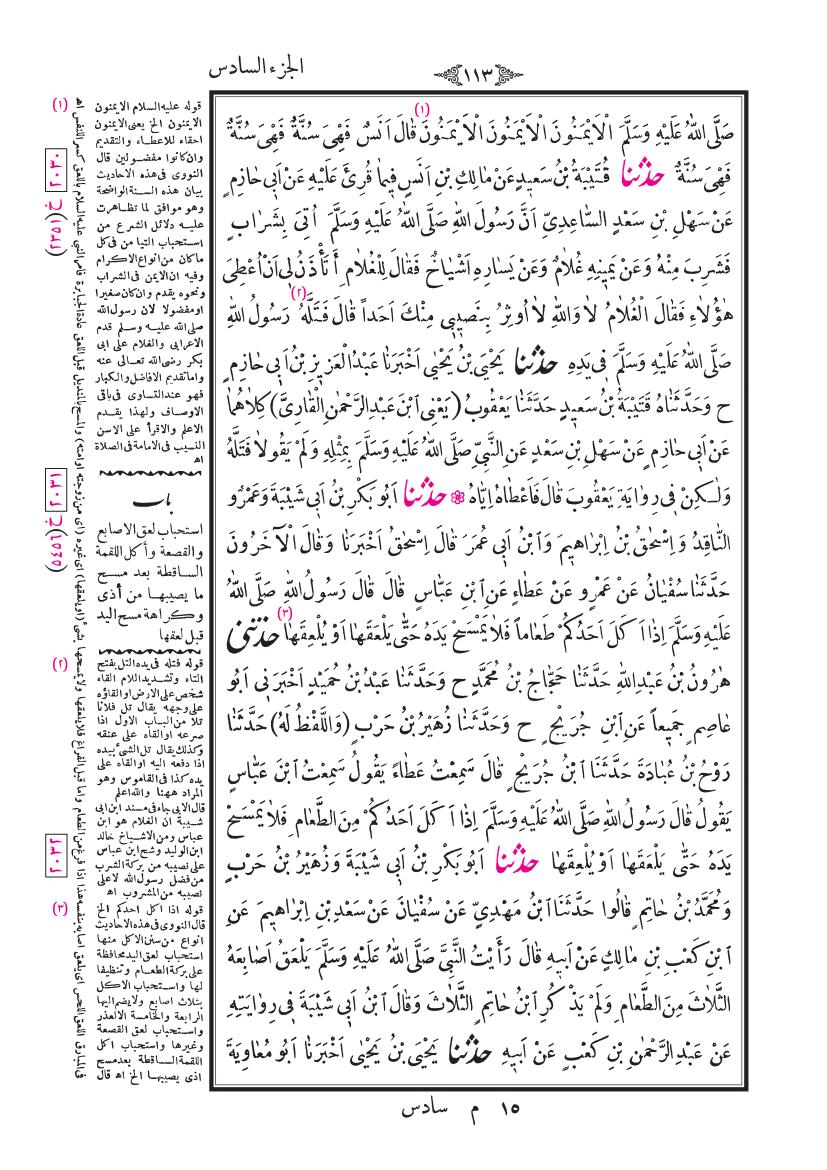 الجزء السادس
١١٣
صَلَّى اللهُ عَلَيْهِ وَسَلَّمَ الْاَيْمَنُونَ الْاَيْمَنُونَ الْاَيْمَنُونَ (١) قَالَ اَنَسٌ فَهِىَ سُنَّةٌ فَهِىَ سُنَّةٌ
فَهِىَ سُنَّةٌ حَدَّثَنَا قُتَيْبَةُ بْنُ سَعِيدٍ عَنْ مَالِكِ بْنِ اَنَسٍ فِيمَا قُرِئَ عَلَيْهِ عَنْ اَبِى حَازِمٍ
عَنْ سَهْلِ بْنِ سَعْدٍ السَّاعِدِىِّ اَنَّ رَسُولَ اللهِ صَلَّى اللهُ عَلَيْهِ وَسَلَّمَ اُتِىَ بِشَرَابٍ
فَشَرِبَ مِنْهُ وَعَنْ يَمِينِهِ غُلَامٌ وَعَنْ يَسَارِهِ اَشْيَاخٌ فَقَالَ لِلْغُلَامِ اَتَأْذَنُ لِى اَنْ اُعْطِىَ
هٰؤُلَاءِ فَقَالَ الْغُلَامُ لَا وَاللهِ لَا اُوثِرُ بِنَصِيبِى مِنْكَ اَحَداً قَالَ فَتَلَّهُ (٢) رَسُولُ اللهِ
صَلَّى اللهُ عَلَيْهِ وَسَلَّمَ فِى يَدِهِ حَدَّثَنَا يَحْيَى بْنُ يَحْيٰى اَخْبَرَنَا عَبْدُ الْعَزِيزِ بْنُ اَبِى حَازِمٍ
ح وَحَدَّثَنَاهُ قُتَيْبَةُ بْنُ سَعِيدٍ حَدَّثَنَا يَعْقُوبُ (يَعْنِى ابْنَ عَبْدِ الرَّحْمٰنِ الْقَارِىَّ) كِلَاهُمَا
عَنْ اَبِى حَازِمٍ عَنْ سَهْلِ بْنِ سَعْدٍ عَنِ النَّبِىِّ صَلَّى اللهُ عَلَيْهِ وَسَلَّمَ بِمِثْلِهِ وَلَمْ يَقُولَا فَتَلَّهُ
وَلٰكِنْ فِى رِوَايَةِ يَعْقُوبَ قَالَ فَاَعْطَاهُ اِيَّاهُ ❁ حَدَّثَنَا اَبُو بَكْرِ بْنُ اَبِى شَيْبَةَ وَعَمْرٌو
النَّاقِدُ وَاِسْحٰقُ بْنُ اِبْرَاهِيمَ وَابْنُ اَبِى عُمَرَ قَالَ اِسْحٰقُ اَخْبَرَنَا وَقَالَ الْآخَرُونَ
حَدَّثَنَا سُفْيَانُ عَنْ عَمْرٍو عَنْ عَطَاءٍ عَنِ ابْنِ عَبَّاسٍ قَالَ قَالَ رَسُولُ اللهِ صَلَّى اللهُ
عَلَيْهِ وَسَلَّمَ اِذَا اَكَلَ اَحَدُكُمْ طَعَاماً فَلَا يَمْسَحْ يَدَهُ حَتَّى يَلْعَقَهَا اَوْ يُلْعِقَهَا (٣) حَدَّثَنِى
هٰرُونُ بْنُ عَبْدِ اللهِ حَدَّثَنَا حَجَّاجُ بْنُ مُحَمَّدٍ ح وَحَدَّثَنَا عَبْدُ بْنُ حُمَيْدٍ اَخْبَرَنِى اَبُو
عَاصِمٍ جَمِيعاً عَنِ ابْنِ جُرَيْجٍ ح وَحَدَّثَنَا زُهَيْرُ بْنُ حَرْبٍ (وَاللَّفْظُ لَهُ) حَدَّثَنَا
رَوْحُ بْنُ عُبَادَةَ حَدَّثَنَا ابْنُ جُرَيْجٍ قَالَ سَمِعْتُ عَطَاءً يَقُولُ سَمِعْتُ ابْنَ عَبَّاسٍ
يَقُولُ قَالَ رَسُولُ اللهِ صَلَّى اللهُ عَلَيْهِ وَسَلَّمَ اِذَا اَكَلَ اَحَدُكُمْ مِنَ الطَّعَامِ فَلَا يَمْسَحْ
يَدَهُ حَتَّى يَلْعَقَهَا اَوْ يُلْعِقَهَا حَدَّثَنَا اَبُو بَكْرِ بْنُ اَبِى شَيْبَةَ وَزُهَيْرُ بْنُ حَرْبٍ
وَمُحَمَّدُ بْنُ حَاتِمٍ قَالُوا حَدَّثَنَا ابْنُ مَهْدِىٍّ عَنْ سُفْيَانَ عَنْ سَعْدِ بْنِ اِبْرَاهِيمَ عَنِ
ابْنِ كَعْبِ بْنِ مَالِكٍ عَنْ اَبِيهِ قَالَ رَأَيْتُ النَّبِىَّ صَلَّى اللهُ عَلَيْهِ وَسَلَّمَ يَلْعَقُ اَصَابِعَهُ
الثَّلَاثَ مِنَ الطَّعَامِ وَلَمْ يَذْكُرِ ابْنُ حَاتِمٍ الثَّلَاثَ وَقَالَ ابْنُ اَبِى شَيْبَةَ فِى رِوَايَتِهِ
عَنْ عَبْدِ الرَّحْمٰنِ بْنِ كَعْبٍ عَنْ اَبِيهِ حَدَّثَنَا يَحْيَى بْنُ يَحْيٰى اَخْبَرَنَا اَبُو مُعَاوِيَةَ
(١)
قوله عليه السلام الايمنون
الايمنون الخ يعنى الايمنون
احقاء للاعطاء والتقديم
وان كانوا مفضولين قال
النووى فى هذه الاحاديث
بيان هذه السنة الواضحة
وهو موافق لما تظاهرت
عليه دلائل الشرع من
استحباب التيامن فى كل
ماكان من انواع الاكرام
وفيه ان الايمن فى الشراب
ونحوه يقدم وان كان صغيرا
اومفضولا لان رسول الله
صلى الله عليه وسلم قدم
الاعرابى والغلام على ابى
بكر رضى الله تعالى عنه
واما تقديم الافاضل والكبار
فهو عند التساوى فى باقى
الاوصاف ولهذا يقدم
الاعلم والاقرأ على الاسن
النسيب فى الامامة فى الصلاة
اه
باب
استحباب لعق الاصابع
والقصعة وأكل اللقمة
الساقطة بعد مسح
ما يصيبها من أذى
وكراهة مسح اليد
قبل لعقها
(٢)
قوله فتله فى يده التل بفتح
التاء وتشديد اللام القاء
شخص على الارض او القاؤه
على وجهه يقال تل فلانا
تلا من الباب الاول اذا
صرعه او القاه على عنقه
وكذلك يقال تل الشئ بيده
اذا دفعه اليه او القاه على
يده كذا فى القاموس وهو
المراد ههنا والله اعلم
قال الابى جاء فى مسند ابن ابى
شيبة ان الغلام هو ابن
عباس ومن الاشياخ خالد
ابن الوليد وشح ابن عباس
على نصيبه من بركة الشرب
من فضل رسول الله لا على
نصيبه من المشروب اه
(٣)
قوله اذا اكل احدكم الخ
قال النووى فى هذه الاحاديث
انواع من سنن الاكل منها
استحباب لعق اليد محافظة
على بركة الطعام وتنظيفا
لها واستحباب الاكل
بثلاث اصابع ولا يضم اليها
الرابعة والخامسة الا لعذر
واستحباب لعق القصعة
وغيرها واستحباب اكل
اللقمة الساقطة بعد مسح
اذى يصيبها الخ اه قال
١٥ م سادس